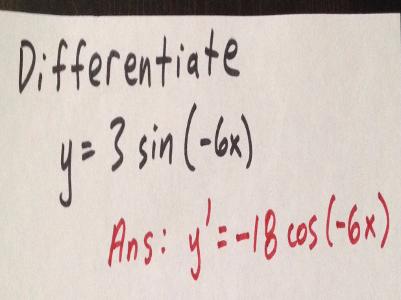 Differentiate
y = 3 sin (-6x)
Ans: y' = -18 cos (-6x)